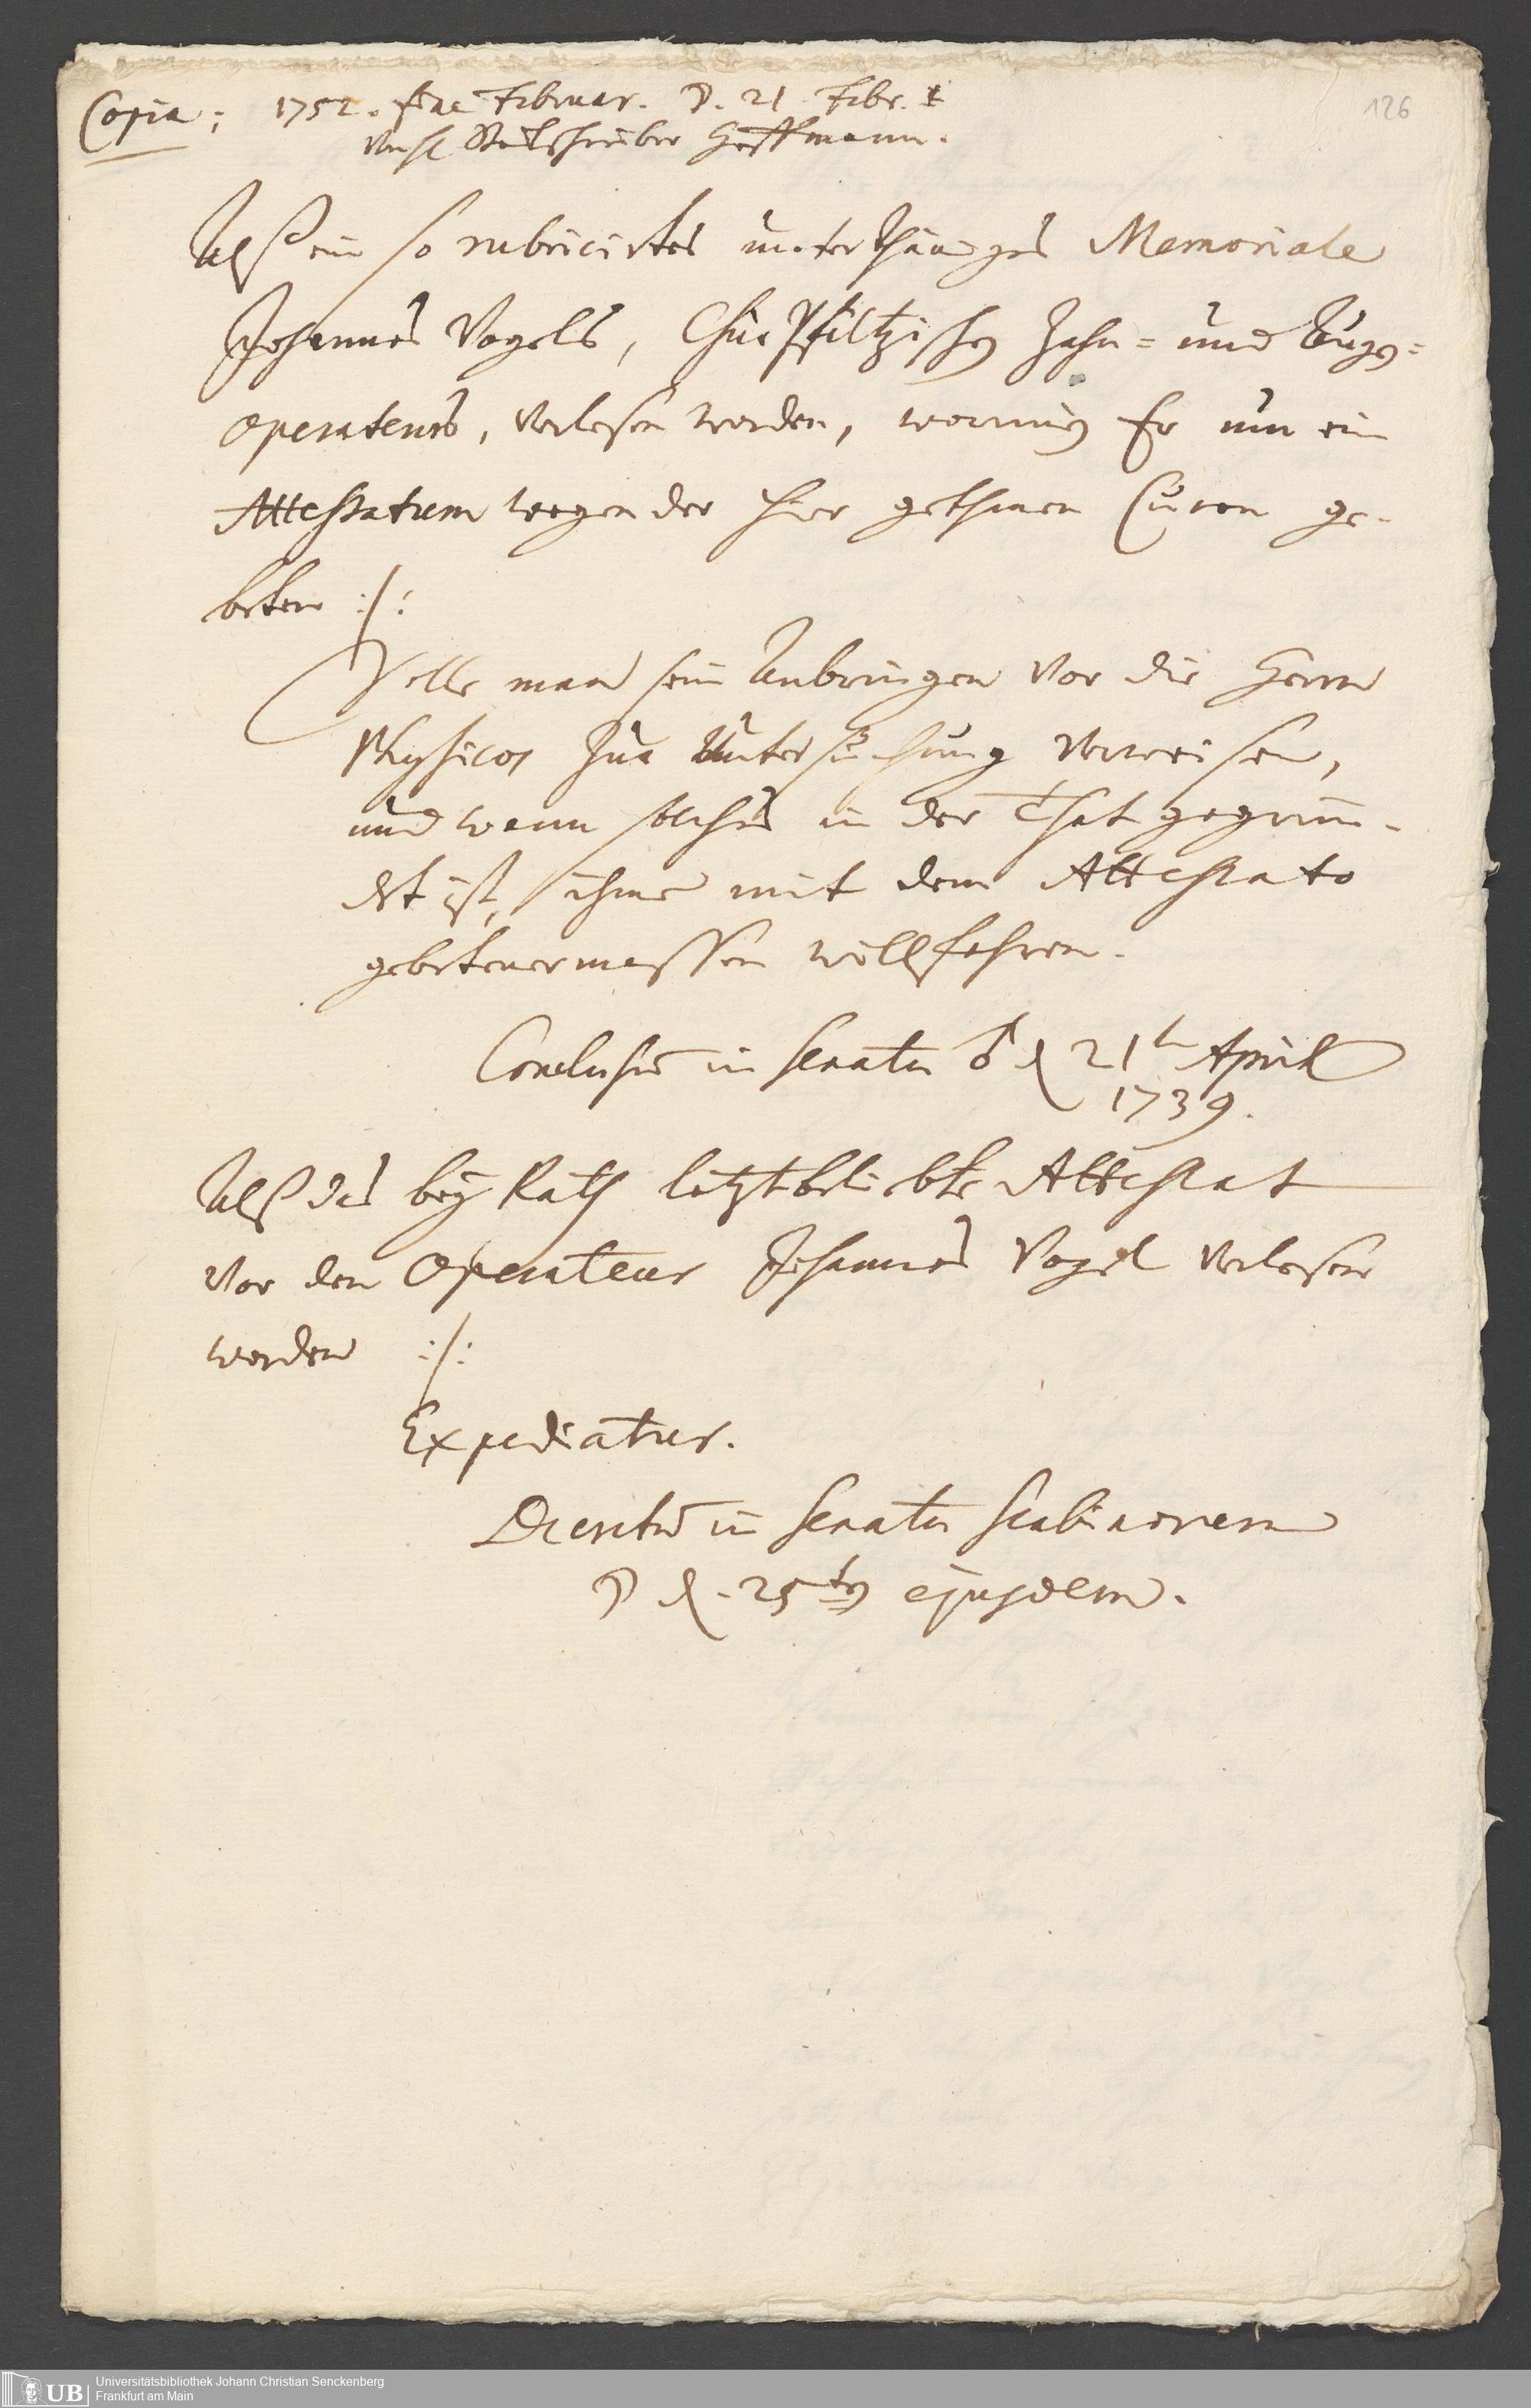 Copia: 1752. fine Februar. D. 21 Febr. †
Rathschreiber Hoffmann.
126
Alß ein so rubricirtes unterthäniges Memoriale
Johannes Vogels, ChurPfältzischen Zahn= und Augen=
operateurs, verlesen worden, worinnen Er um ein
Attestatum wegen der hier gethanen Curen ge-
betten :/:
Solle man sein Anbringen vor die Herrn
Physicos zur Untersuchung verweisen,
und wann solches in der That gegrün-
det ist, ihme mit dem Attestato
gebettenermassen willfahren.
Conclusum in Senatu ♂ d 21ten April
1739.
Alß das bey Rath letztbeliebte Attestat
vor den Operateur Johannes Vogel verlesen
worden :/:
Expediatur.
Decretum in Senatu Scabinorum
☽ d. 25ten ejusdem.
UB
Universitätsbibliothek Johann Christian Senckenberg
Frankfurt am Main